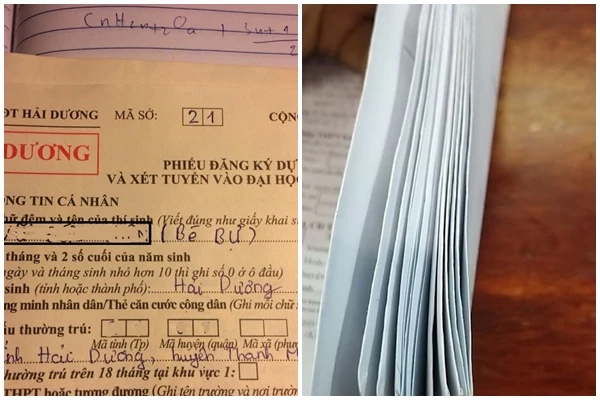 CnH2n+2Oa +
ĐT HẢI DƯƠNG MÃ SỞ: 21 CỘN
DƯƠNG
PHIẾU ĐĂNG KÝ DỰ
VÀ XÉT TUYỂN VÀO ĐẠI HỌC
NG TIN CÁ NHÂN
chữ đệm và tên của thí sinh (Viết đúng như giấy khai s
(Bé Bự)
tháng và 2 số cuối của năm sinh
ngày và tháng sinh nhỏ hơn 10 thì ghi số 0 ở ô đầu)
sinh (tỉnh hoặc thành phố): Hải Dương
ng minh nhân dân/Thẻ căn cước công dân (Ghi mỗi chữ
ẩu thường trú:
Mã tỉnh (Tp) Mã huyện (quận) Mã xã (phư
ỉnh Hải Dương, huyện Thanh M
hường trú trên 18 tháng tại khu vực 1:
THPT hoặc tương đương (Ghi tên trường và nơi trườn